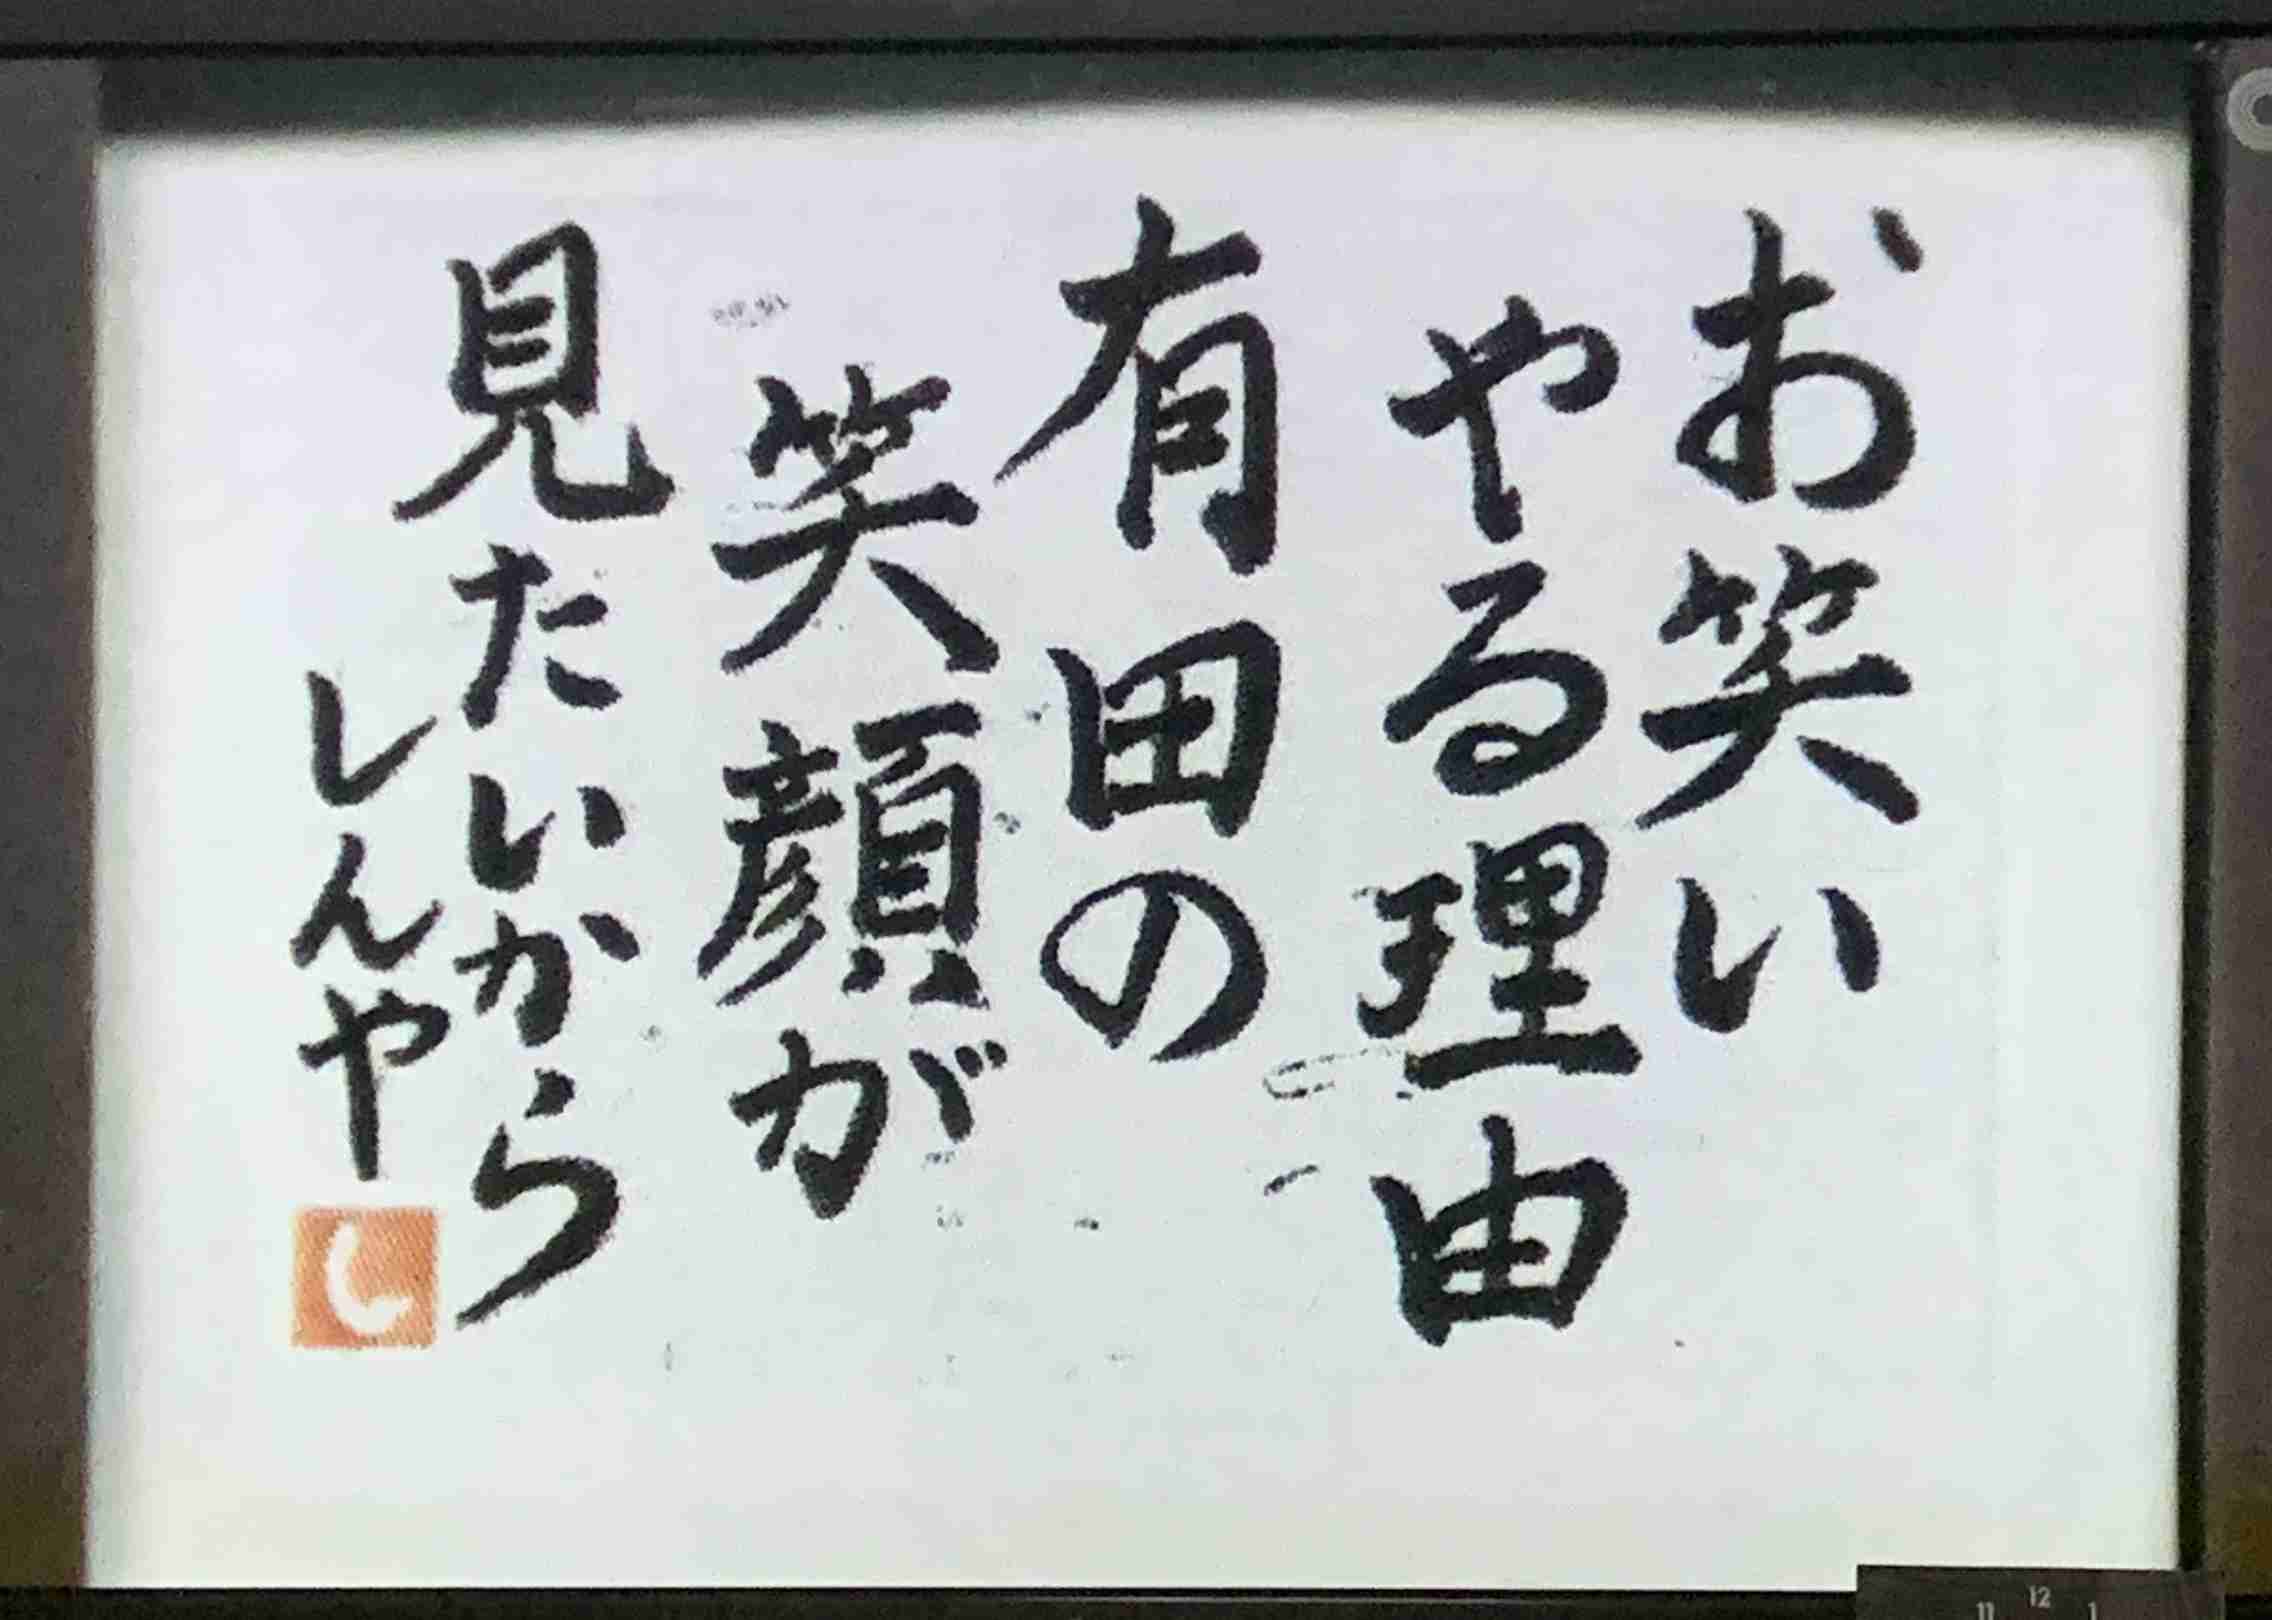 お笑い
やる理由
有田の
笑顔が
見たいから
しんや
し
11 12 1